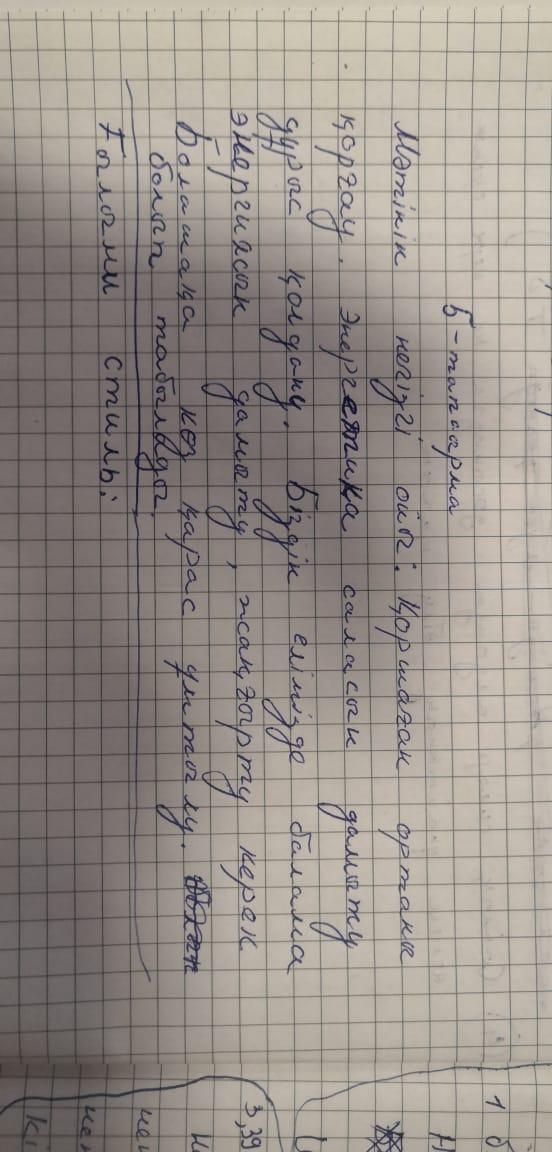 5-тапсырма
Мәтінін негізгі ойы: Қоршаған ортаны
қорғау. Энергетика саласын дамыту
дұрыс қолдану. Біздін елімізде балама
энергиясын дамыту, жаңғырту керек
Болашақа көз қарас ұмтылу.
болып табылыды.
Ғылыми стиль.
1 б
3,39
кі